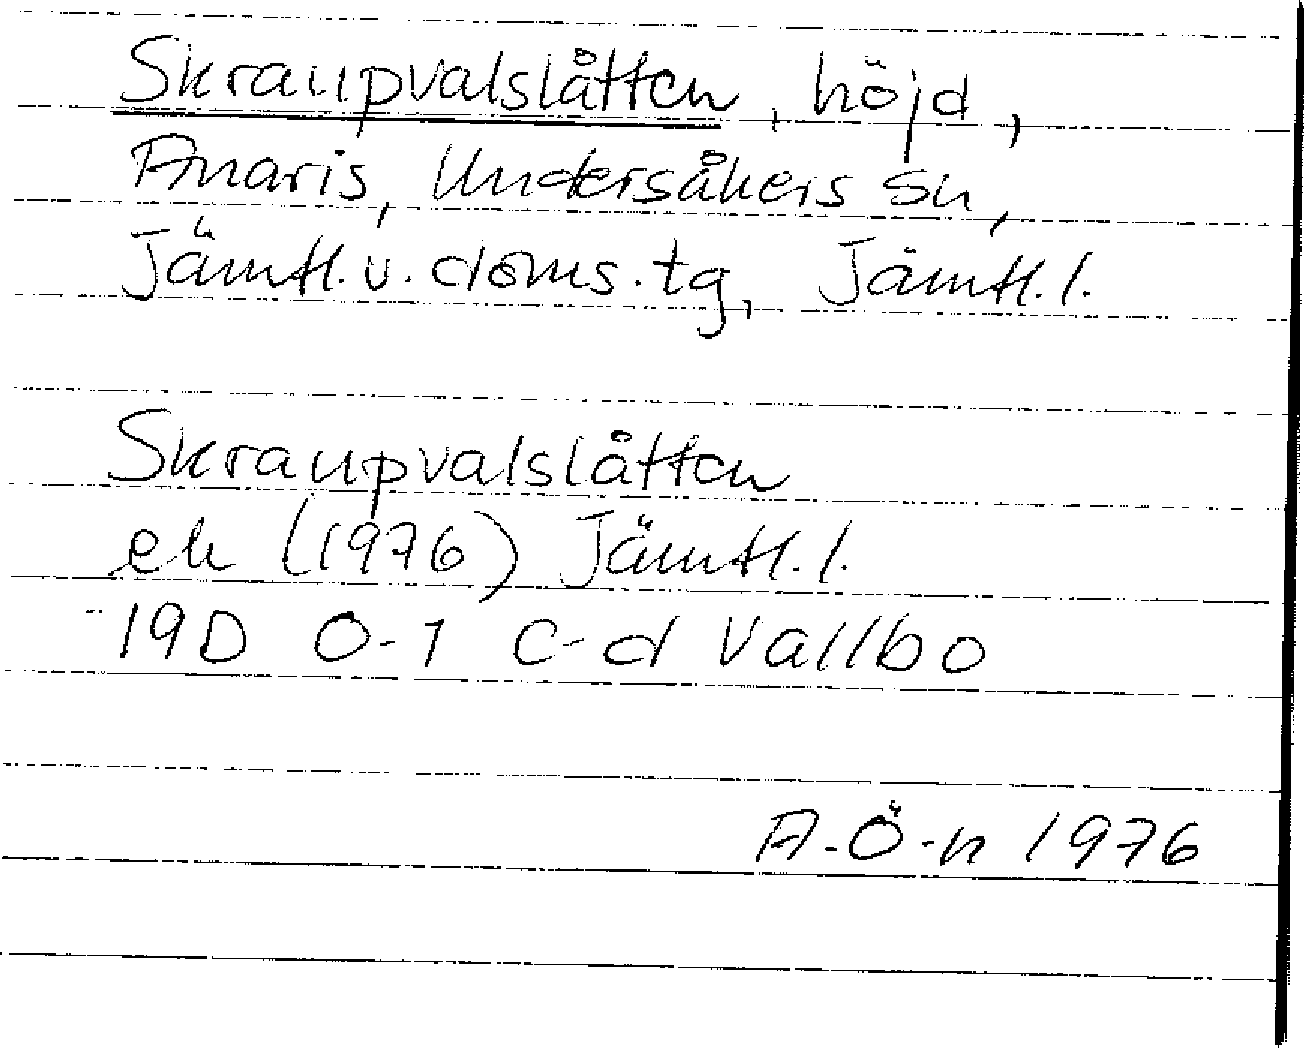 Skraupvalslåtten, höjd,
Anaris, Undersåkers sn,
Jämtl. v. doms. tg, Jämtl. l.
Skraupvalslåtten
ek (1976) Jämtl. l.
19D 0-1 c-d Vallbo
A. Ö-n 1976